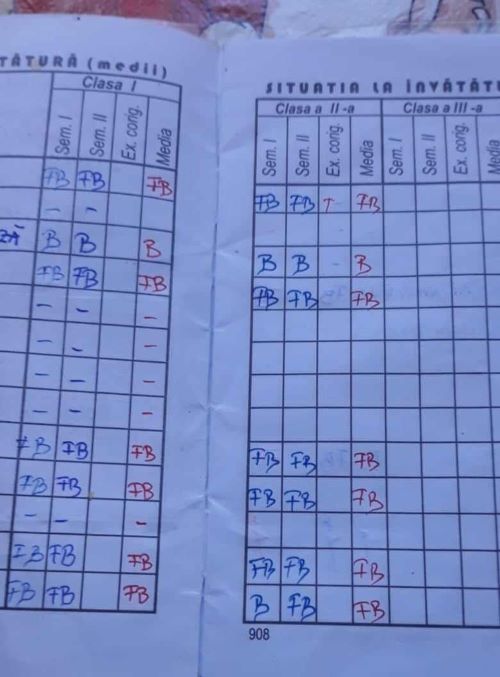 TĂTURĂ (medii)
Clasa I
Sem. I Sem. II Ex. corig. Media
FB FB FB
- -
B B B
FB FB FB
- - -
- - -
- - -
- - -
FB FB FB
FB FB FB
- - -
FB FB FB
FB FB FB
SITUATIA LA ÎNVĂTĂTU
Clasa a II -a Clasa a III -a
Sem. I Sem. II Ex. corig. Media Sem. I Sem. II Ex. corig. Media
FB FB FB
B B - B
FB FB FB
FB FB FB
FB FB FB
FB FB FB
B FB FB
908